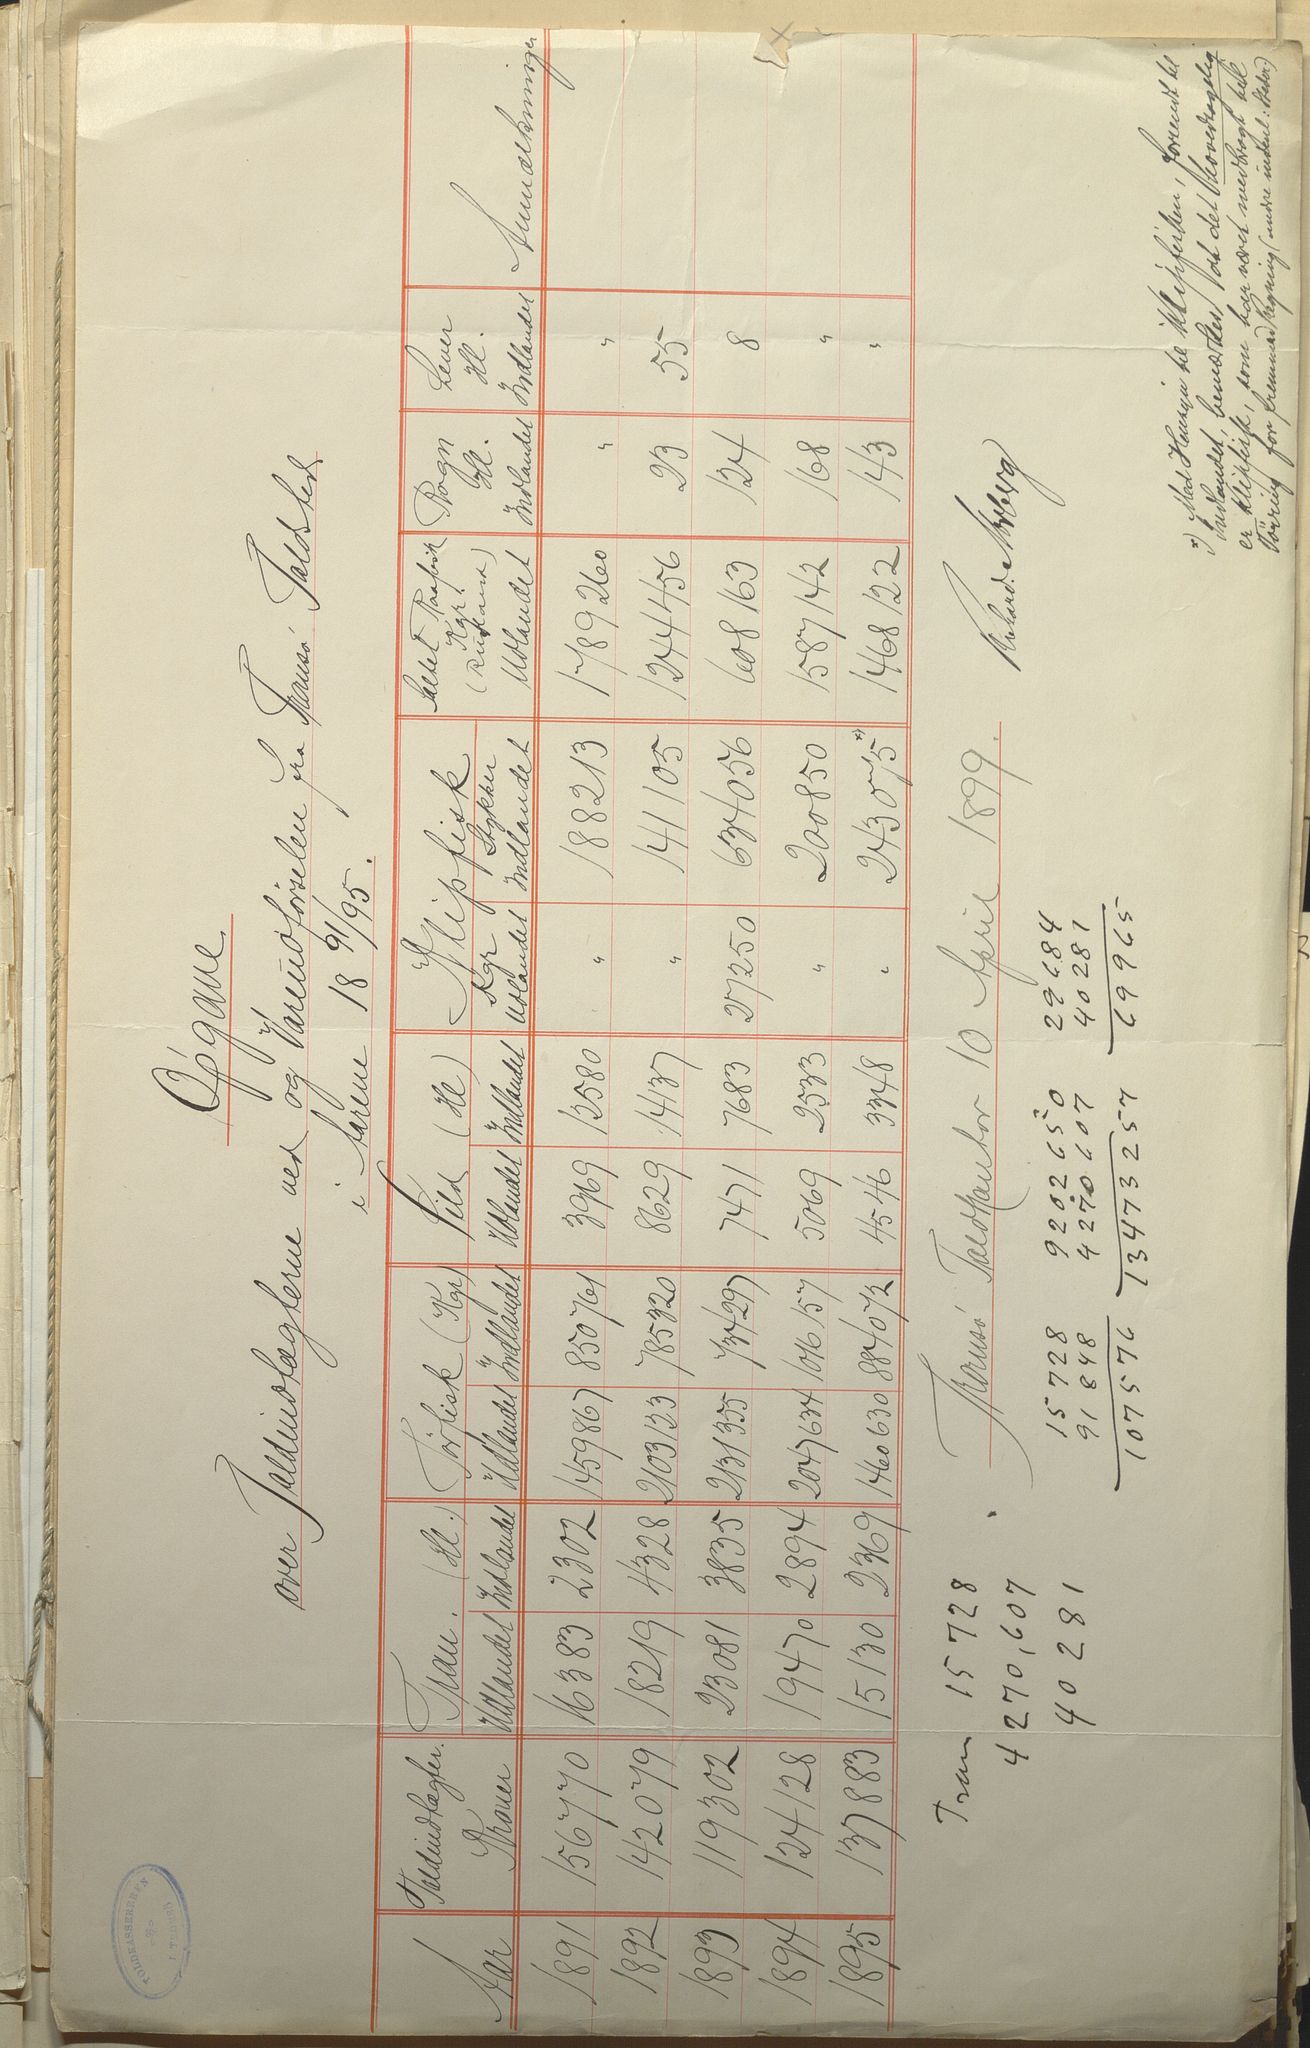 TOLDKASSEREREN
I TROMSØ
Opgave
over Toldindtægterne ved og Vareudførselen fra Tromsø Toldsted
i Aarene 18 91/95.
Aar
Toldindtægter. Kroner
Tran. (Hl.) Udlandet Indlandet
Tørfisk (Kgr) Udlandet Indlandet
Sild (Hl) Udlandet Indlandet
Klipfisk Kgr Udlandet Stykker Indlandet
Saltet Raafisk Kgr. (Rusland) Udlandet
Rogn Hl. Indlandet
Lever Hl. Indlandet
Anmærkninger
1891 156770 16383 2302 1459867 850761 3969 13580 " 188213 1789260 " "
1892 142079 18219 4328 2103133 785320 8629 1437 " 141105 1244456 23 55
1893 119302 23081 3835 2131355 734297 7471 7683 27250 634056 608163 124 8
1894 124128 19470 2894 2047634 1016157 5069 2533 " 200850 1587142 168 "
1895 137883 15130 2369 1460630 884072 4546 3348 " 243075 *) 1468122 143 "
Tromsø Toldkontor 10 April 1899.
Tran 15728
4270,607
40281
15728
91848
107576
9202650
4270607
13473257
29684
40281
69965
*) Med Hensyn til Klipfisken, forsendt til
Indlandet, bemærkes, at det hovedsagelig
er Klipfisk, som har været medbragt hid